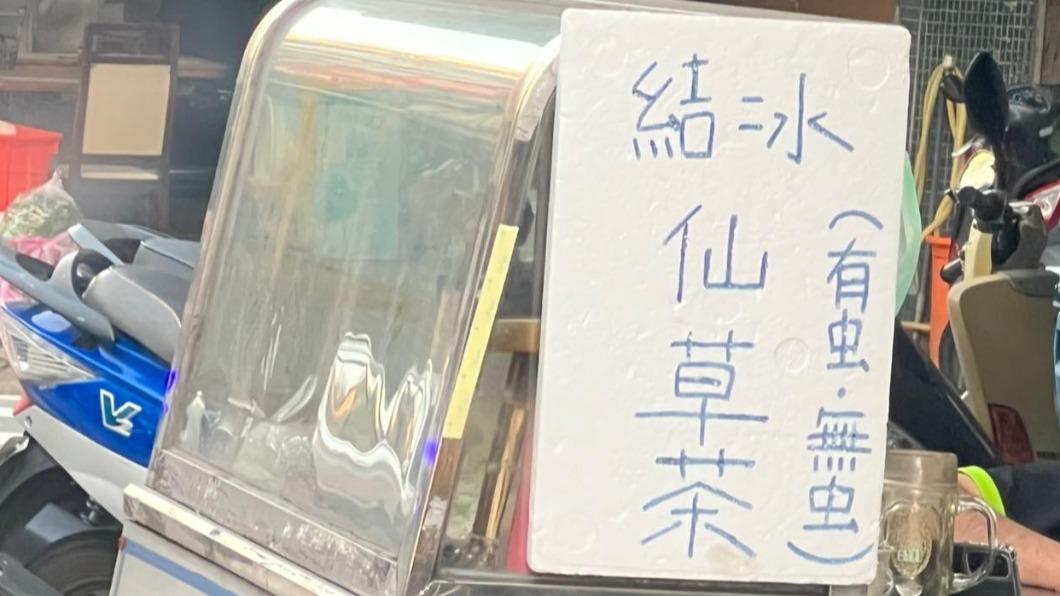 結冰
仙草茶
(有虫·無虫)
V2